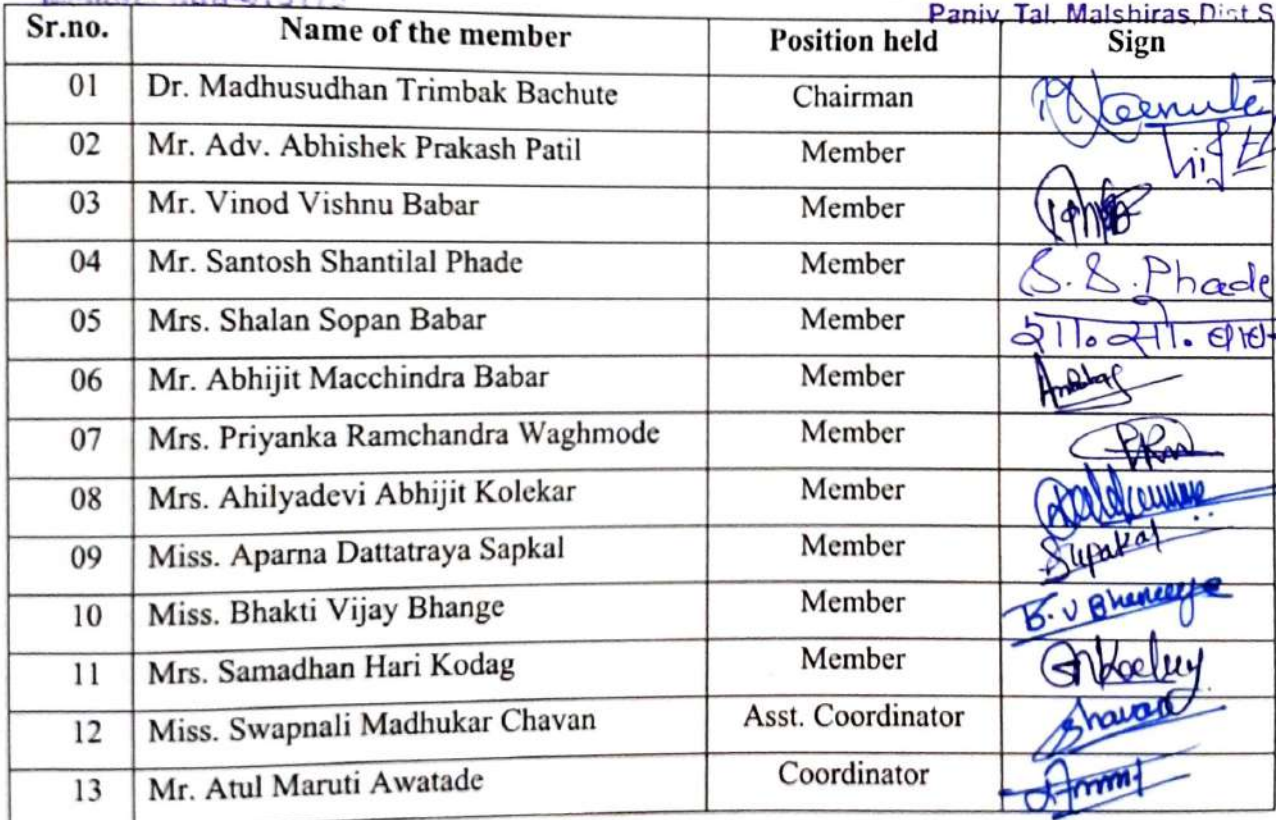 Paniv, Tal. Malshiras, Dist.S
Sr.no. Name of the member Position held Sign
01 Dr. Madhusudhan Trimbak Bachute Chairman
02 Mr. Adv. Abhishek Prakash Patil Member
03 Mr. Vinod Vishnu Babar Member
04 Mr. Santosh Shantilal Phade Member S. S. Phade
05 Mrs. Shalan Sopan Babar Member
06 Mr. Abhijit Macchindra Babar Member
07 Mrs. Priyanka Ramchandra Waghmode Member
08 Mrs. Ahilyadevi Abhijit Kolekar Member
09 Miss. Aparna Dattatraya Sapkal Member
10 Miss. Bhakti Vijay Bhange Member
11 Mrs. Samadhan Hari Kodag Member
12 Miss. Swapnali Madhukar Chavan Asst. Coordinator
13 Mr. Atul Maruti Awatade Coordinator